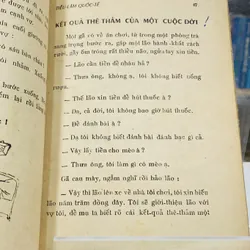 TIẾU LÂM QUỐC-TẾ 47
KẾT QUẢ THÊ THẢM CỦA MỘT CUỘC ĐỜI !
Một gã có vẻ ăn chơi, từ trong một phòng trà
sang trọng bước ra, gặp một lão hành khất rách
rưới, gầy ốm trông rất thiểu não, ngửa nón xin tiền.
— Lão cần tiền để nhậu hả ?
— Thưa ông, không ạ, tôi không biết uống
rượu.
— Thế lão xin tiền để hút thuốc ?
— Dạ, cả đời, tôi không bao giờ hút thuốc.
— Để đánh bài à ?
— Dạ tôi không biết đánh bài đánh bạc gì cả.
— Vậy lấy tiền cho mèo ?
— Thưa ông, tôi làm gì có mèo ạ.
Gã cau mày, ngẫm nghĩ rồi bảo lão :
— Vậy thì lão lên xe về nhà tôi chơi, tôi xin biếu
lão năm trăm đồng đây. Tôi sẽ giới-thiệu lão với
vợ tôi, để mụ ta biết rõ cái kết-quả thê-thảm một
bước xuống